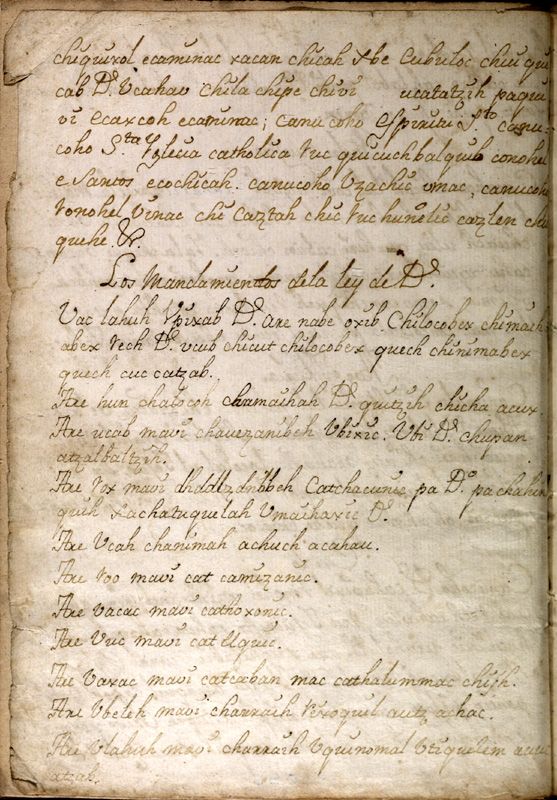 chiquixol ecaminac xacan chicah xbe Cubuloc chiu qui
cab D.s Vcahau chila chipe chivi ucatatzih paqui
vi ecaxcoh ecaminac; canu coho Espiritu S.to canu
coho S.ta Yglecia catholica ruc quicuchbalquib conohel
e Santos ecochicah. canucoho Vzachic vmac, canucoho
ronohel Vinac chi Caztah chic ruc hunelic cazlen
quehe. &.
Los Mandamientos de la ley de D.s
Vac lahuh Vpixab D.s are nabe oxib. Chilocobex chimaih
abex rech D.s vcub chicut chilocobex quech chinimabex
quech cuc catzab.
Are hun chalocoh chamaihah D.s quitzih chicha acux.
Are ucab mavi chavezanibeh Vbixic. Vbi D.s chupan
atzalbaltzih.
Are rox mavi Catchacunic pa D.o pachahin
quih xachatuquilah Vmaihaxic D.s
Are Vcah chanimah achuch acahau.
Are roo mavi cat camizanic.
Are vacac mavi cathoxonic.
Are Vuc mavi cat Elquic.
Are Vaxac mavi catcaban mac cathalummac chiih.
Are Vbeleh mavi charraih rixoquil autz achac.
Are Vlahuh mavi charraih Vquinomal Vtiquelem
atzak.